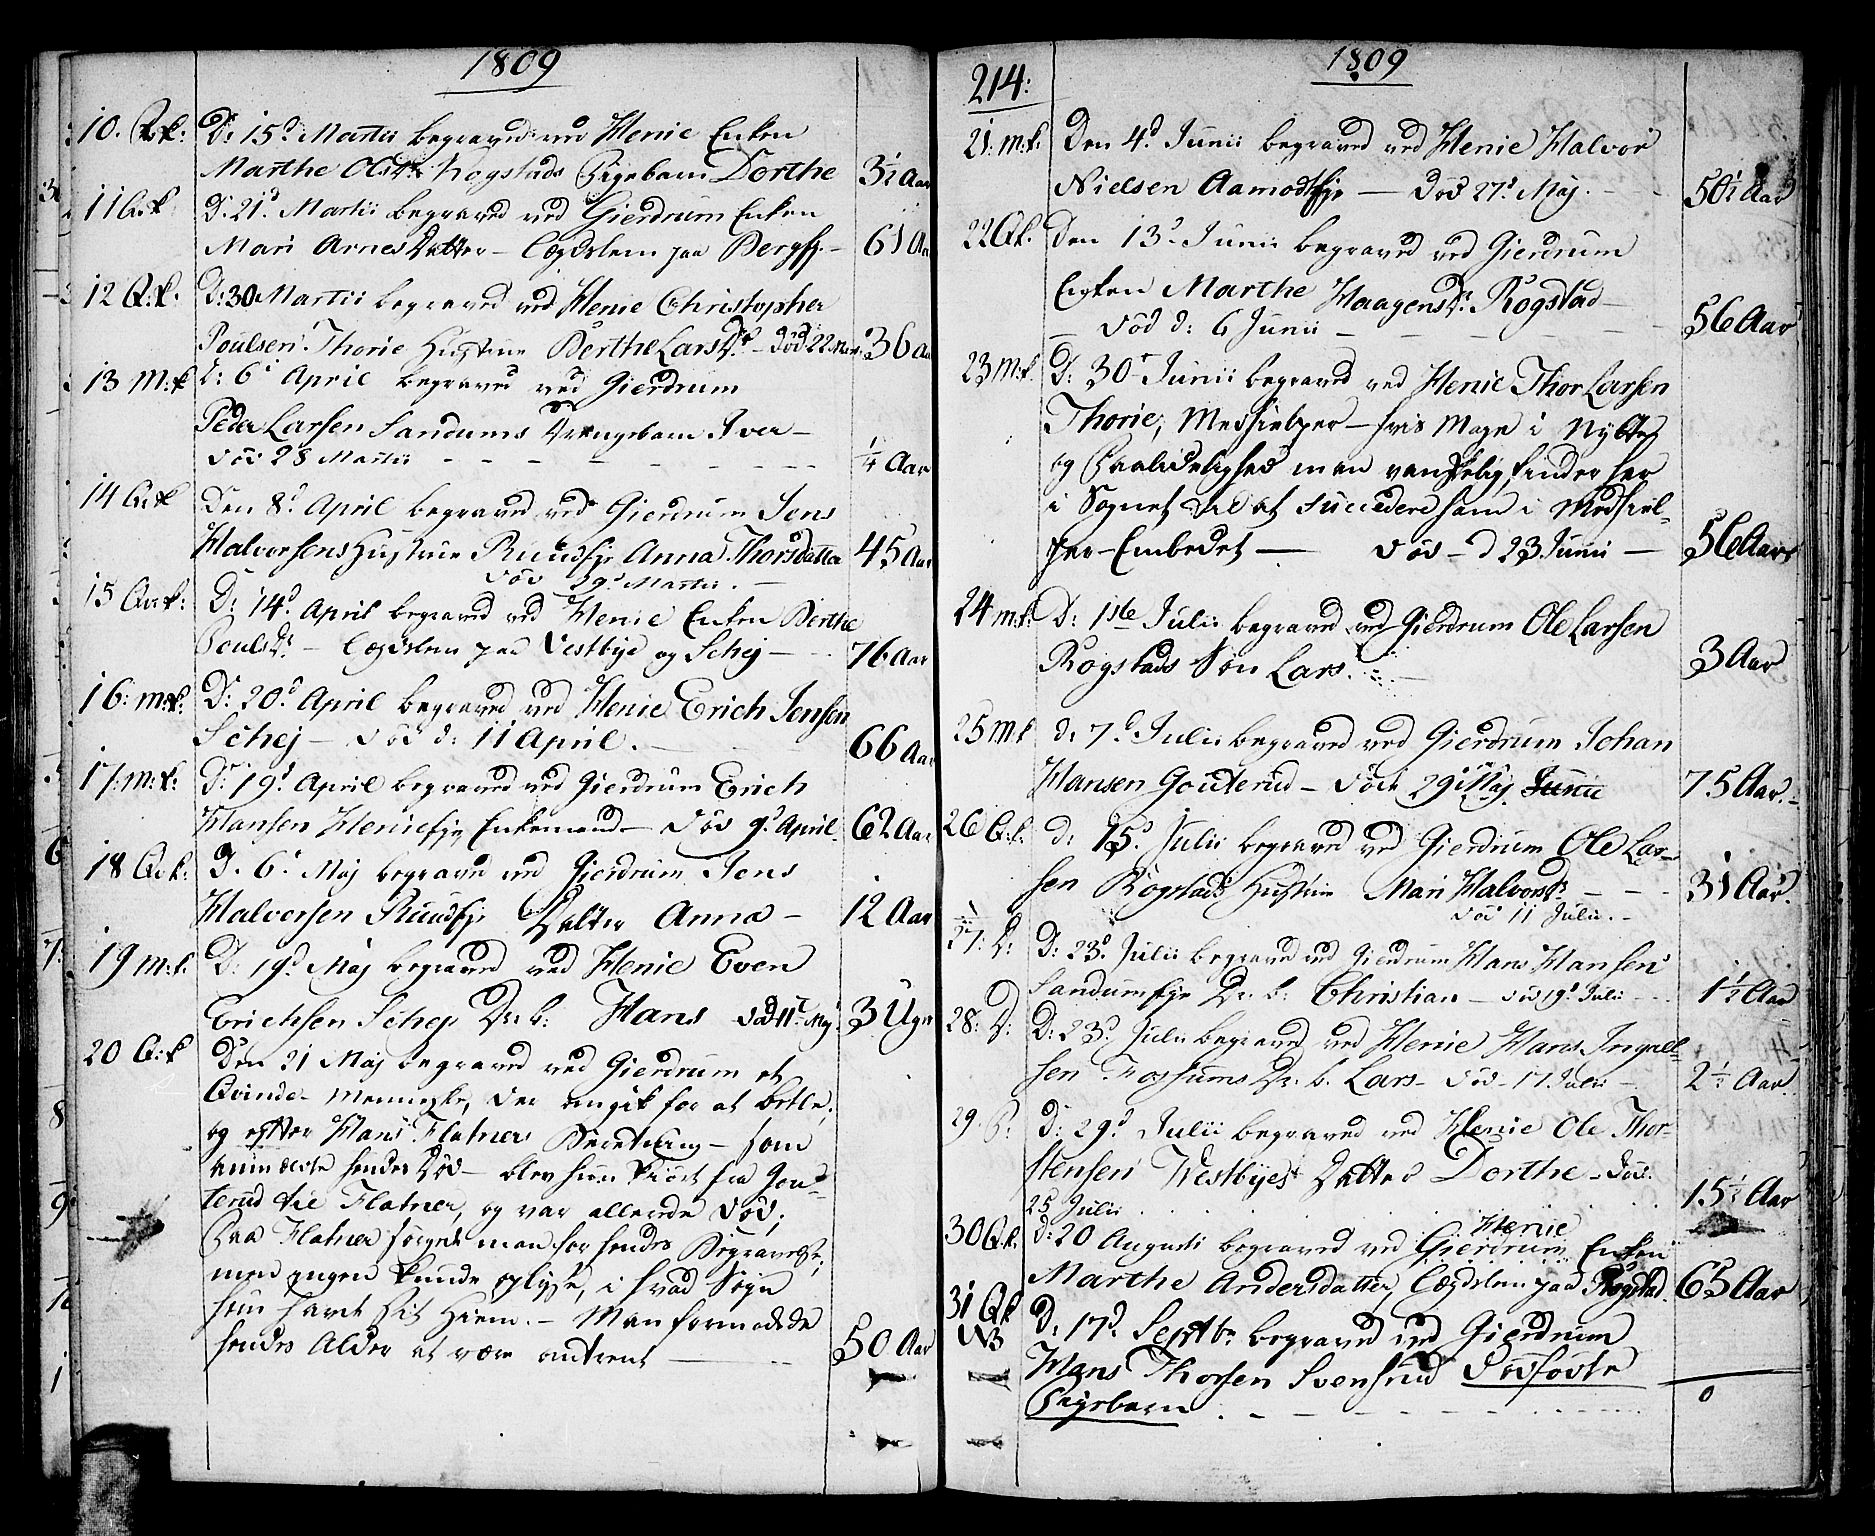 1809
10. Q.k: D: 15d Martii begraved ved Henie Enken
Marthe Olsdr. Kogstads Pigebarn Dorthe 3½ Aar
11 Q.k D. 21d Martii begraved ved Gierdrum Enken
Mari Arnes Datter - Lægdslem paa Berg 61 Aar
12 Q:k. D: 30 Martii begraved ved Henie Christopher
Poulsen Thorie Hustrue Berthe Lars Dr. - Død 22 Mar. 36 Aar
13 M:k D: 6d April begraved ved Gierdrum
Peder Larsen Sandums Drengebarn Iver -
død 28 Martii - - - - - ¼ Aar
14 Q.k Den 8d April begraved ved Gierdrum Jens
Halvorsens Hustrue Ruudseje Anna Thorsdatter 45 Aar
død 29d Martii. -
15 Q.k: D: 14d. April begraved ved Henie Enken Berthe
Pouls Dr. - Lægdslem paa Vestbye og Schej - 76 Aar
16: m:k: D: 20d April begraved ved Henie Erich Jensen
Schej - død d: 11 April. 66 Aar
17: m:k: D: 19d April begraved ved Gierdrum Erich
Hansen Henieeje Enkemand - død 9d April 62 Aar
18 Q.k: D. 6d Maj begravet ved Gierdrum Jens
Halvorsen Ruudseje Datter Anna - 12 Aar
19 m:k. D: 19d Maj begraved ved Henie Even
Erichsen Schej Dr: b: Hans død 11te Maj 3 Uger
20 Q:k Den 21 Maj begraved ved Gierdrum et
Qvinde-Menneske, der omgik for at betle,
og efter Hans Flatners Beretning - som
anmældte hendes Død - blev hun kiørt fra Gou-
terud til Flatner, og var allerede død;
Paa Flatner sørgede man for hendes Begravelse;
men ingen kunde oplyse, i hvad Sogn
hun havde sit Hiem. - Man formodede
hendes Alder at være omtrent - 50 Aar
214:
1809
21: m:k. Den 4d Junii begraved ved Henie Halvor
Nielsen Aamodteje - død 27d Maj. - 50½ Aar
22 Q.k. Den 13d Junii begraved ved Gierdrum
Enken Marthe Haagensdr. Rogstad -
- død d: 6 Junii - 56 Aar
23 m:k. D: 30te Junii begraved ved Henie Thor Larsen
Thorie, Medhielper - hvis Mage i Nytte
og Paalidelighed man vanskelig finder her
i Sognet til at succedere ham i Medhiel-
per-Embedet - død - d 23 Junii - 56 Aar
24 m.k. D: 1ste Julii begraved ved Gierdrum Ole Larsen
Rogstads Søn Lars. 3 Aar
25 M:k d: 7d Julii begraved ved Gierdrum Johan
Hansen Gouterud - død 29d Maj Junii 75 Aar. -
26 Q.k. d: 15d. Julii begraved ved Gierdrum Ole Lar-
sen Rogstads Hustrue Mari Halvorsdr. - - 31 Aar.
død 11 Julii. -
27: D: D: 23d Julii begraved ved Gierdrum Hans Hansen
Sandumseje Dr. b: Christian - død 19d Julii - 1½ Aar
28: D: D: 23d Julii begraved ved Henie Hans Ingel-
sen Fossums Dr. b. Lars - død - 17 Julii - 2½ Aar.
29. P: D: 29d Julii begraved ved Henie Ole Thor-
stensen Westbyes Datter Dorthe - død
25 Julii 15½ Aar
Henie
30 Q.k. d: 20 Augusti begraved ved Gierdrum Enken
Marthe Andersdatter, Lægdslem paa Rogstad. 65 Aar
31 Q.k D: 17d. Septbr begraved ved Gierdrum
NB Hans Thorsen Svensrud Dødfødte 0
Pigebarn . - - - -